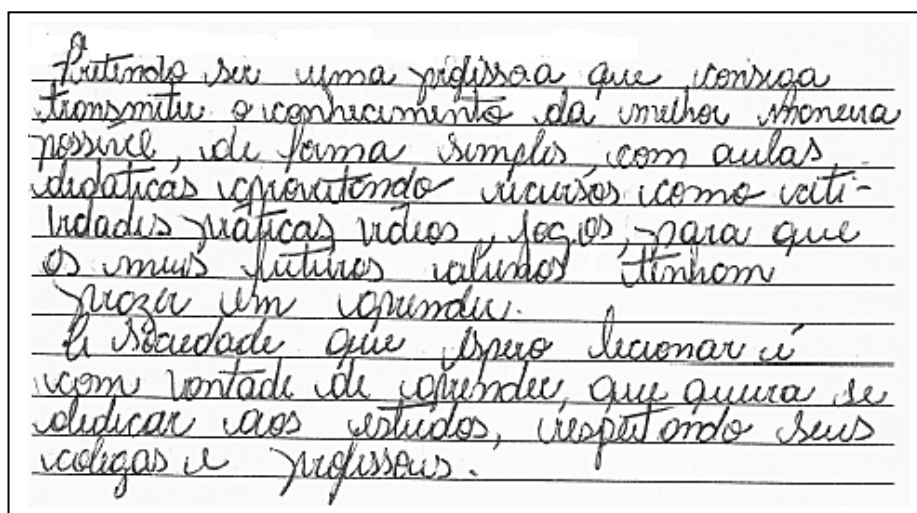 Pretendo ser uma professora que consiga
transmitir o conhecimento da melhor maneira
possível, de forma simples, com aulas
didáticas aproveitando recursos como ati-
vidades práticas vídeos, jogos, para que
os meus futuros alunos tenham
prazer em aprender.
A sociedade que espero lecionar é
com vontade de aprender, que queira se
dedicar aos estudos, respeitando seus
colegas e professores.